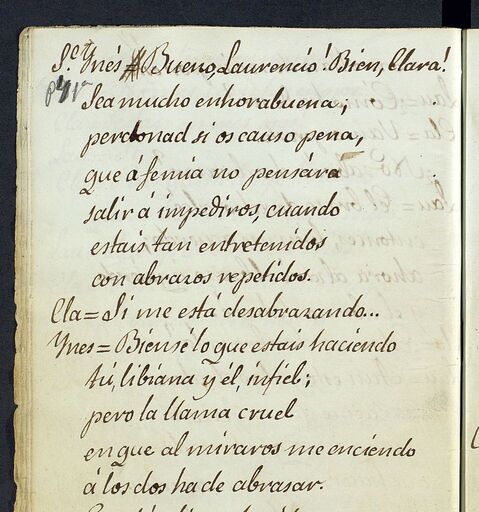 Sᵉ Ynés = Bueno, Laurencio! Bien, Clara!
Sea mucho enhorabuena;
perdonad si os causo pena,
que á femia no pensára
salir á impediros, cuando
estais tan entretenidos
con abrazos repetidos.
Cla = Si me está desabrazando...
Ynes = Bien sé lo que estais haciendo
tú, libiana y él, infiel;
pero la llama cruel
en que al miraros me enciendo
á los dos ha de abrasar.